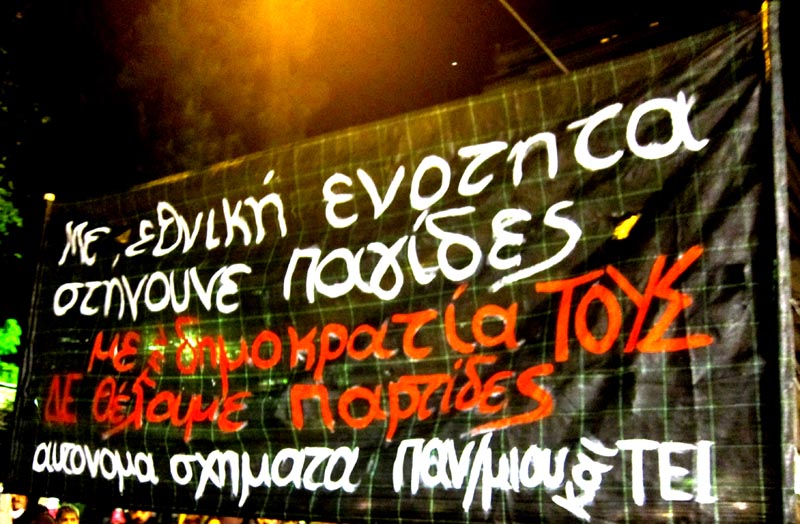 Με εθνική ενοτητα
στηνουνε παγίδες
με δημοκρατία ΤΟΥΣ
ΔΕ θέλαμε παρτίδες
αυτονομα σχηματα παν/μιου & ΤΕΙ